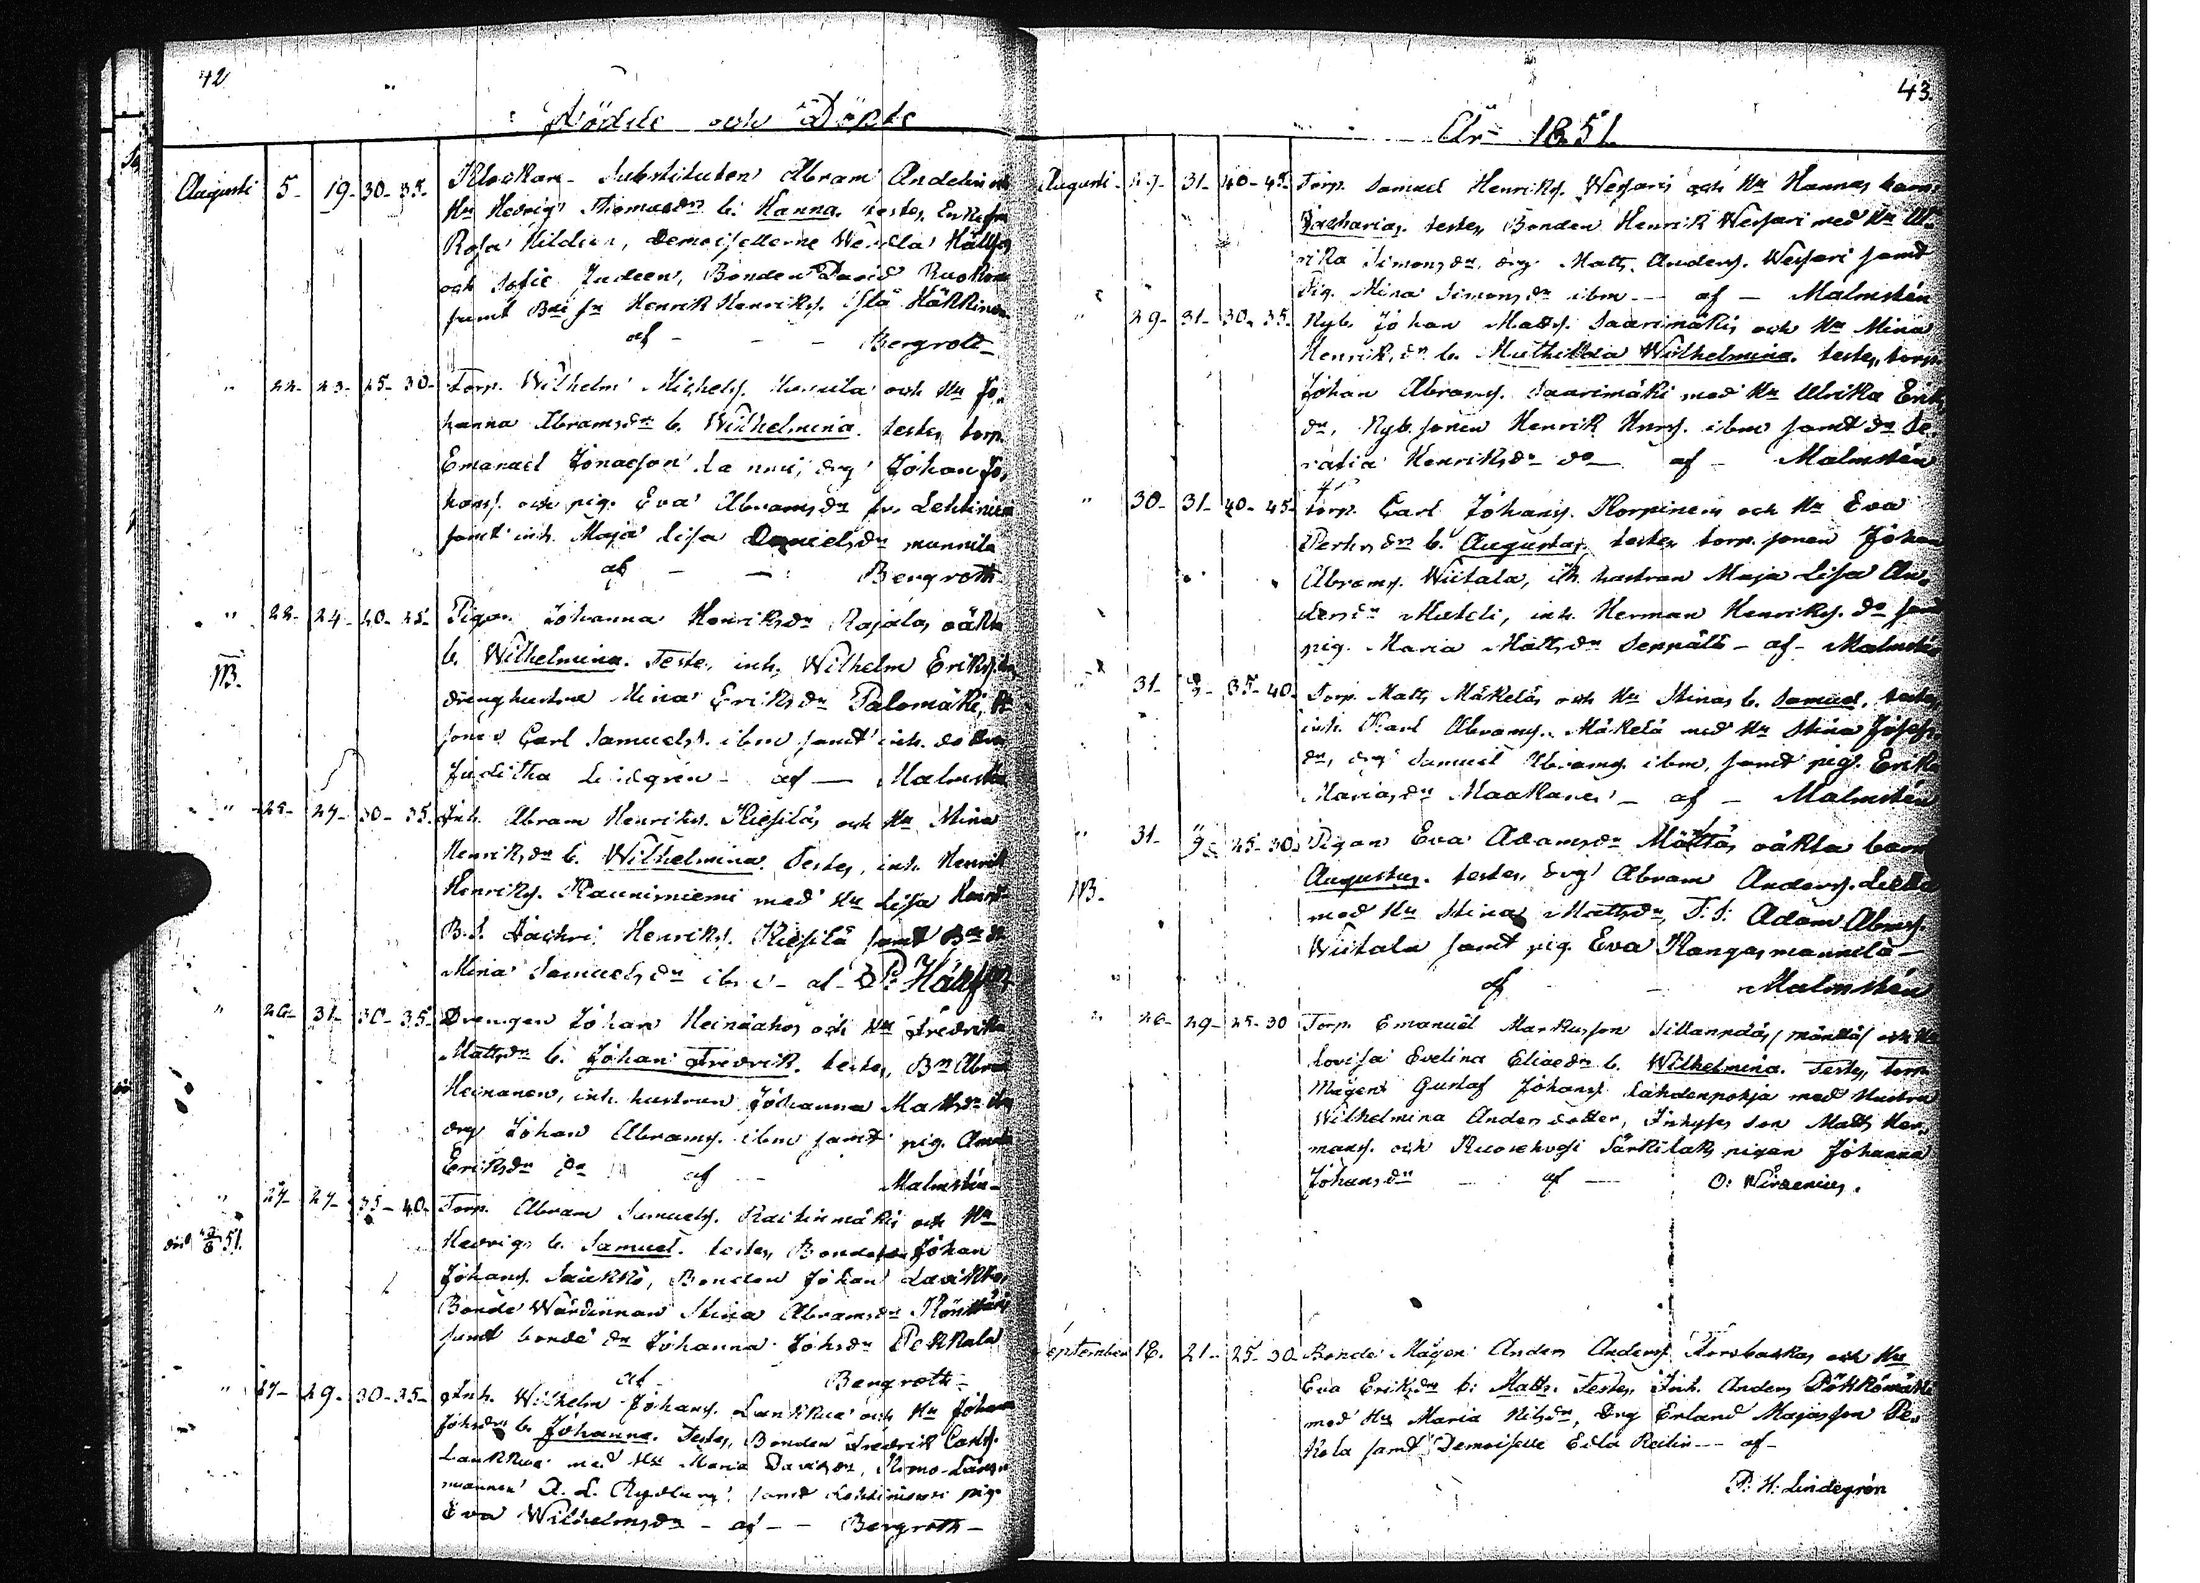 42
Födde och Döpte
Augusti 5- 19- 30-35- Klockare- Substituten Abram Andelin och
Hu Hedvig Thomasdr b. Hanna. testes, Enkefru
Rosa Hildeen, Demoisellerne Wendla Hällfors
och Sofie Judeen, Bonden David Ruokone
samt Bde sn Henrik Henrikss. Iso Häkkinen
af - - - Bergroth-
" 22- 23- 25-30- Torp. Wilhelm Michelss. och Hu Jo-
hanna Abramsdr b. Wilhelmina. testes torp.
Emanuel Jonasson drg Johan Jo-
hanss. och pig. Eva Abramsdr fr. Lehtinien
samt inh. Maja Lisa Danielsdr mannila
af - - Bergroth-
" 22- 24- 20-25- Pigan Johanna Henriksdr Rajalas oäkta
NB. b. Wilhelmina. Teste, inh. Wilhelm Erikss
dränghustru Mina Eriksdr Palomäki,
sonen Carl Samuelss. ibm samt inh.
Juditha Lindgrén - af - Malmstén
" 25- 27- 30-35. Inh. Abram Henrikss. Kiesilä, och Hu Mina
Henriksdr b. Wilhelmina. Testes, inh. Henrik
Henrikss. Rauniniemi med Hu Lisa Henr
B.S. Zachri Henrikss. Kiesilä samt
Mina Samuelsdr ibm - af - P. Hällfors
" 26- 31- 30-35- Drengen Johan Heinäaho, och Hu Fredrika
Mattsdr b. Johan Fredrik. testes, Bn Abram
Heinänen, inh. hustrun Johanna Mattsdr ibm
drg Johan Abrams. ibm samt pig. Amanda
Eriksdr do af - Malmstén-
" 27- 27- 35-40- Torp. Abram Samuelss. Raitinmäki, och Hu
51. Hedvigs b. Samuel. testes, Bondeson Johan
Johanss. Saukko, Bonden Johan Lavikko
Bonde Wärdinnan Stina Abramsdr
samt bonde dr Johanna Johsdr Pekkala
af - Bergroth-
" 27- 29- 30-35- Inh. Wilhelm Johanss. Lankkua och Hu Johanna
Johsdr b. Johanna. Testes, Bonden Fredrik Carlss.
Lankkua med Hu Maria Davidsdr, Kimo-Läns-
mannen A. L. Rydberg samt pig.
Eva Wilhelmsdr - af - - Bergroth-
43.
År 1851.
Augusti- 27- 31- 40-45- Torp. Samuel Henrikss. Wessari och Hu Hannas barn
Zacharias. testes, Bonden Henrik Wessari med Hu Ul-
rika Simonsdr, drg Matts Anderss. Wessari samt
Pig. Mina Simonsdr ibm - af - Malmstén
" 29- 31- 30-35. Nyb. Johan Matts. Saarimäki, och Hu Mina
Henriksdr b. Mathilda Wilhelmina. testes, torp.
Johan Abrams. Saarimäki med Hu Ulrika Eriks
dr, Nyb. sonen Henrik Henrs. ibm samt dr Se-
rafia Henriksdr do - af - Malmstén
" 30- 31- 40-45- Torp. Carl Johanss. Korpinen, och Hu Eva
Pertusdrs b. Augustas, testes torp. sonen Johan
Abramss. Wiitala, ith. hustrun Maja Lisa An-
dersdr inh. Herman Henrikss. do samt
pig. Maria Mattsdr Seppälä - af - Malmstén
" 31- 35-40- Torp. Matts Mäkelä, och Hu Stinas b. Samuel. testes
inh. Karl Abrams. Mäkelä med Hu Stina Josefs-
dr, drg Samuel Abrams. ibm, samt pig. Erika
Mariasdr Maakanen - af - Malmstén
" 31- 25-30- Pigan Eva Adamsdr oäkta barn
NB. Augustus. testes, drg Abram Anderss.
med Hu Stina Mattsdr, T.S. Adam Abrams.
Wiitala samt pig. Eva Kangasmannila-
af - Malmstén
" 26- 29- 25-30 Torp. Emanuel Markusson Sillanpää, och Hu
Lovisa Evelina Eliaedr b. Wilhelmina. Testes, torp
Mågen Gustaf Johanss. Lahdenpohja med Hustru
Wilhelmina Andersdotter, Inhyses son Matts Her-
manss. och Särkilaks pigan Johanna
Johansdr - - af - O: Wirzenius.
September 18. 21- 25-30- Bonde Mågen Anders Anderss. och Hu
Eva Eriksdr b: Matts. Testes, Inh. Anders Pökkömäki
med Hu Maria Nilsdr, Drg Erland Majasson Pe-
kola samt Demoiselle Edla Reilin - - - af -
P: H: Lindegrén